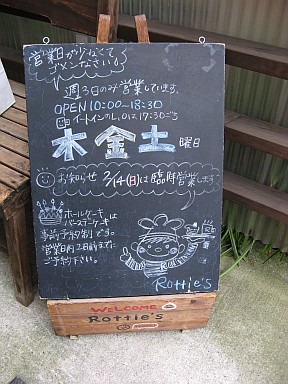 営業日が少なくて
ゴメンなさい!
週3日のみ営業しています。
OPEN 10:00~18:30
イートインのL.Oは17:30ごろ
木金土 曜日
お知らせ 2/14(日)は臨時営業します
ホールケーキは
バースデーケーキ
事前予約制です。
営業日の2日前までに
ご予約下さい。
Rottie's
WELCOME
Rottie's